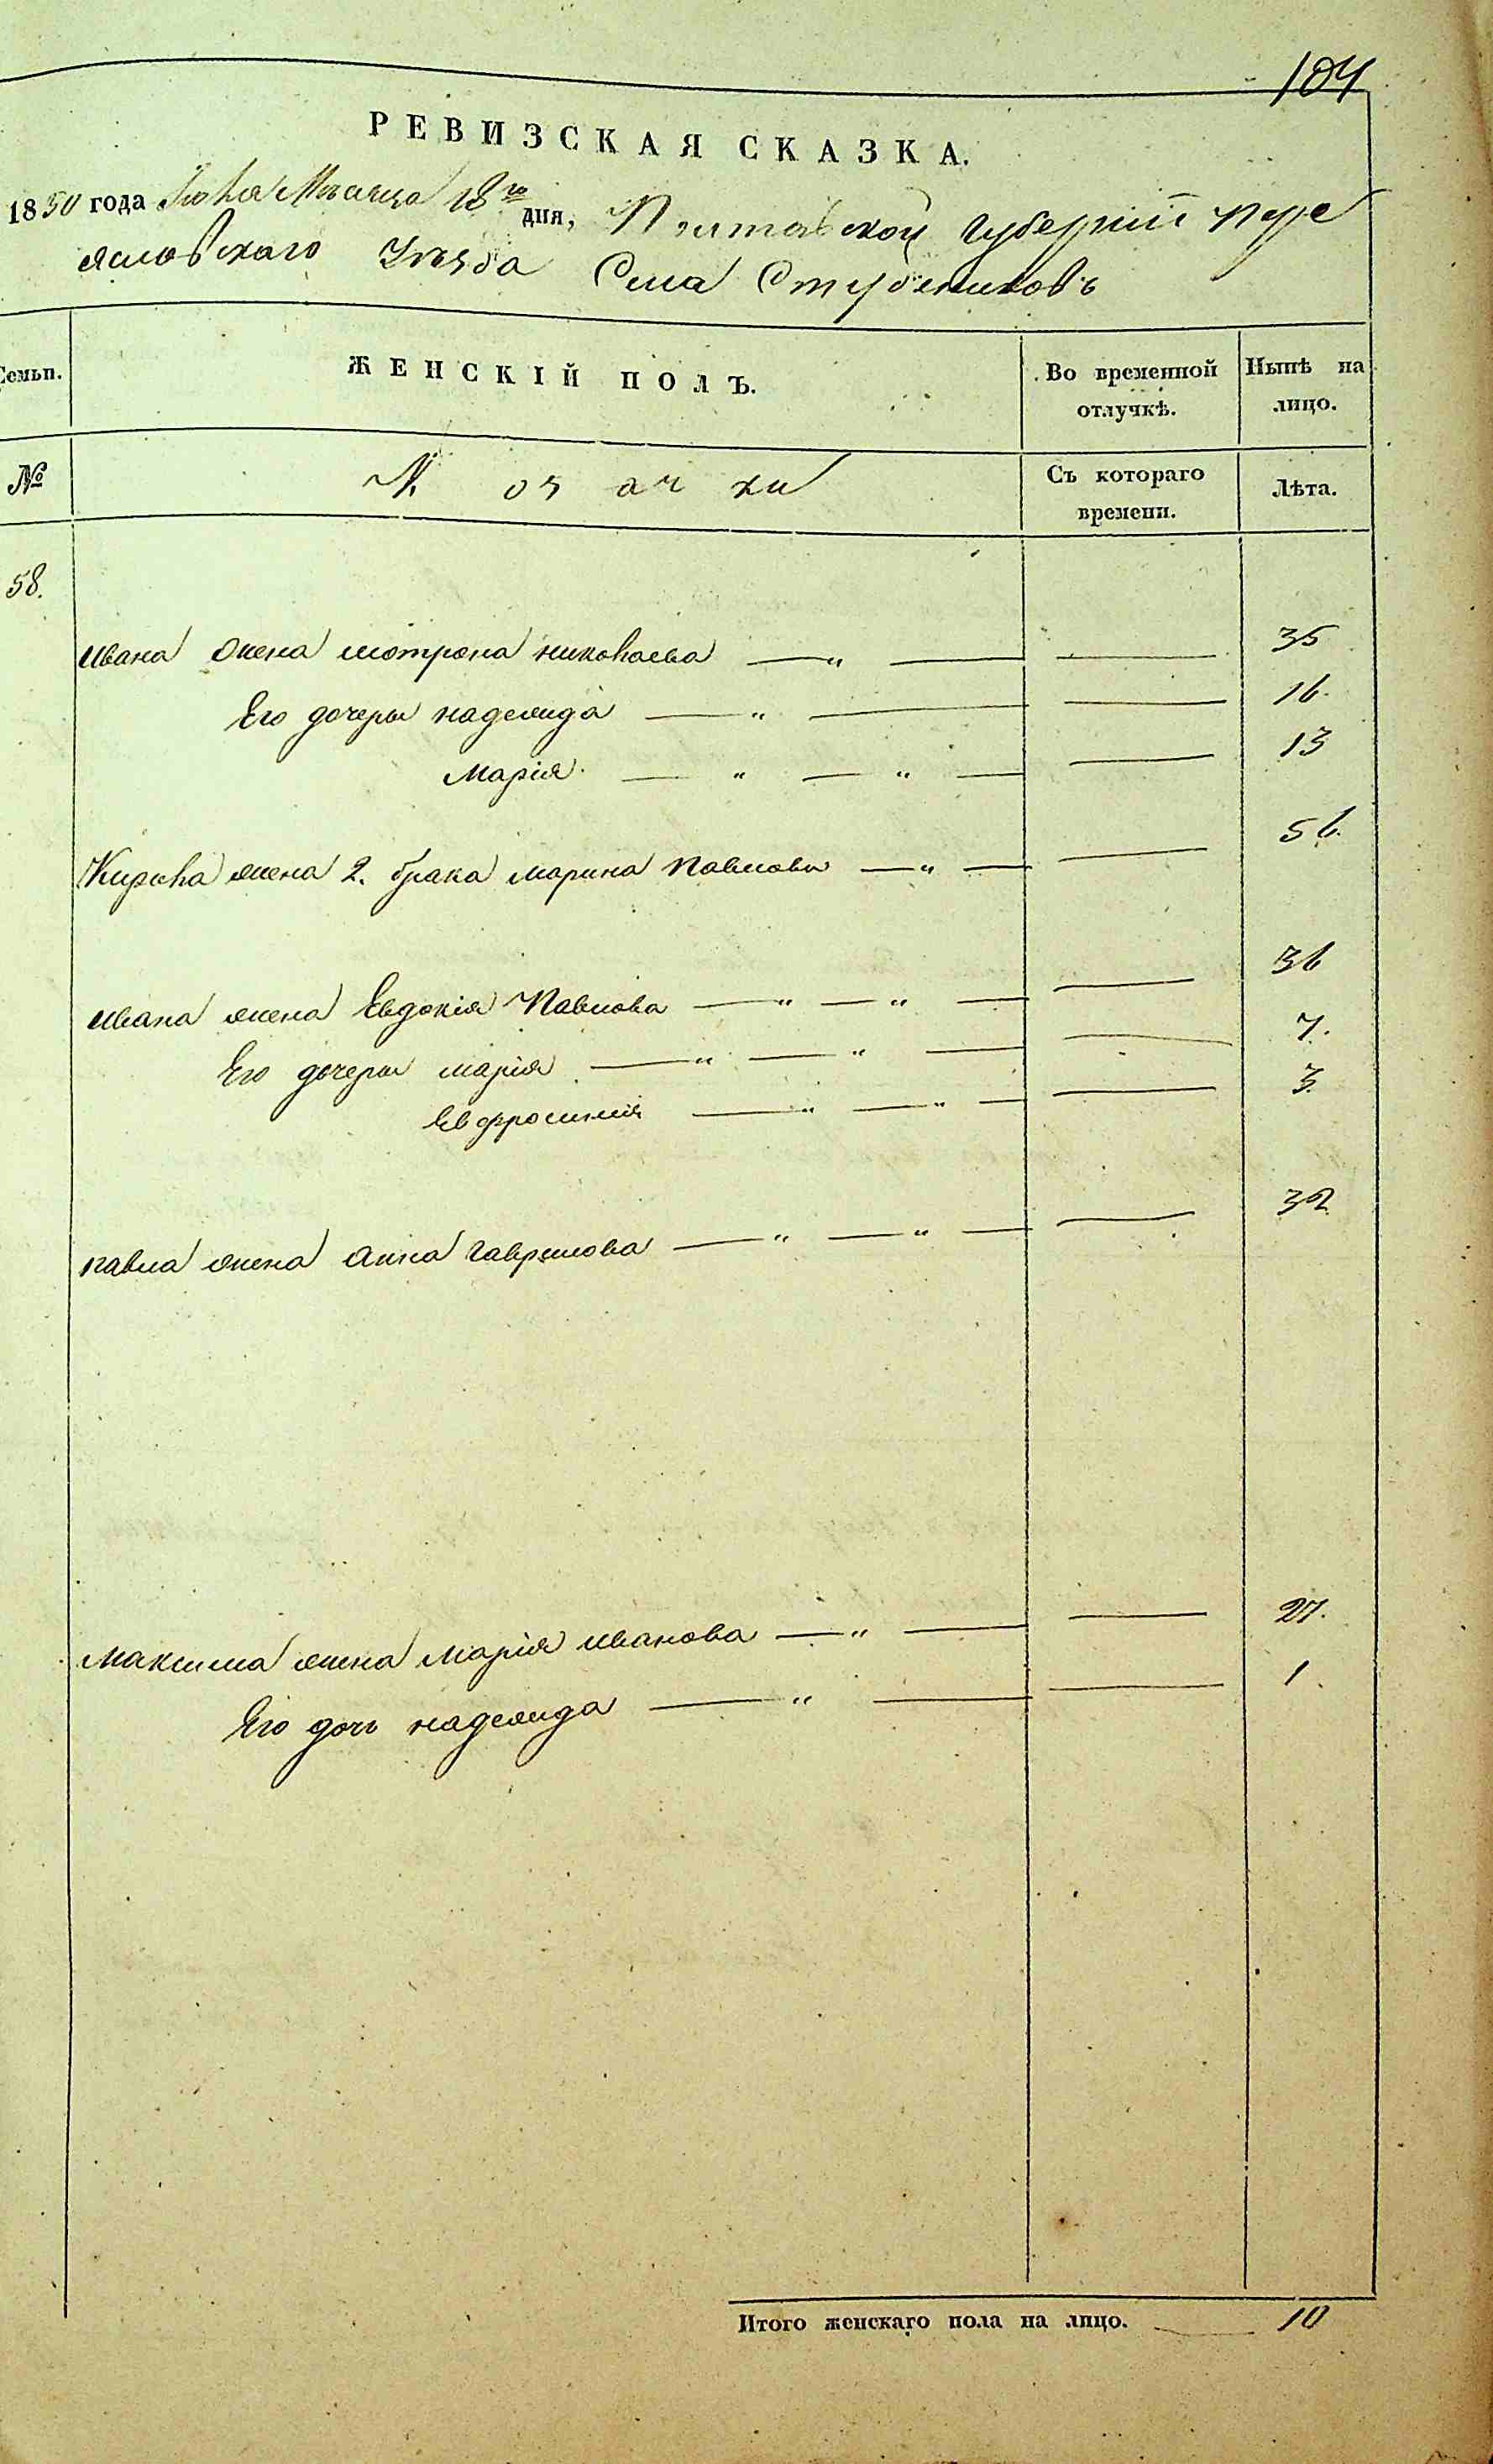 104
РЕВИЗСКАЯ СКАЗКА.
1850 года Июля Мѣсяца 18го дня, Полтавской Губерніи Пере
яславскаго Уѣзда Села Студениковъ
Семьи. ЖЕНСКІЙ ПОЛЪ. Во временной отлучкѣ. Нынѣ на лицо.
№ Козачки Съ котораго времени. Лѣта.
58.
Ивана жена мотрона николаева —„— — 35
Его дочеры надежда —„— — 16.
Марія. —„—„— — 13
Кирила жена 2. брака марина Павлова —„— — 56.
Ивана жена Евдокія Павлова —„—„— — 36
Его дочеры марія —„—„— — 7.
Евфросинія —„—„— — 3.
павла жена анна гаврилова —„—„— — 32
максима жена марія иванова —„— — 27.
Его дочь надежда —„— — 1.
Итого женскаго пола на лицо. — 10